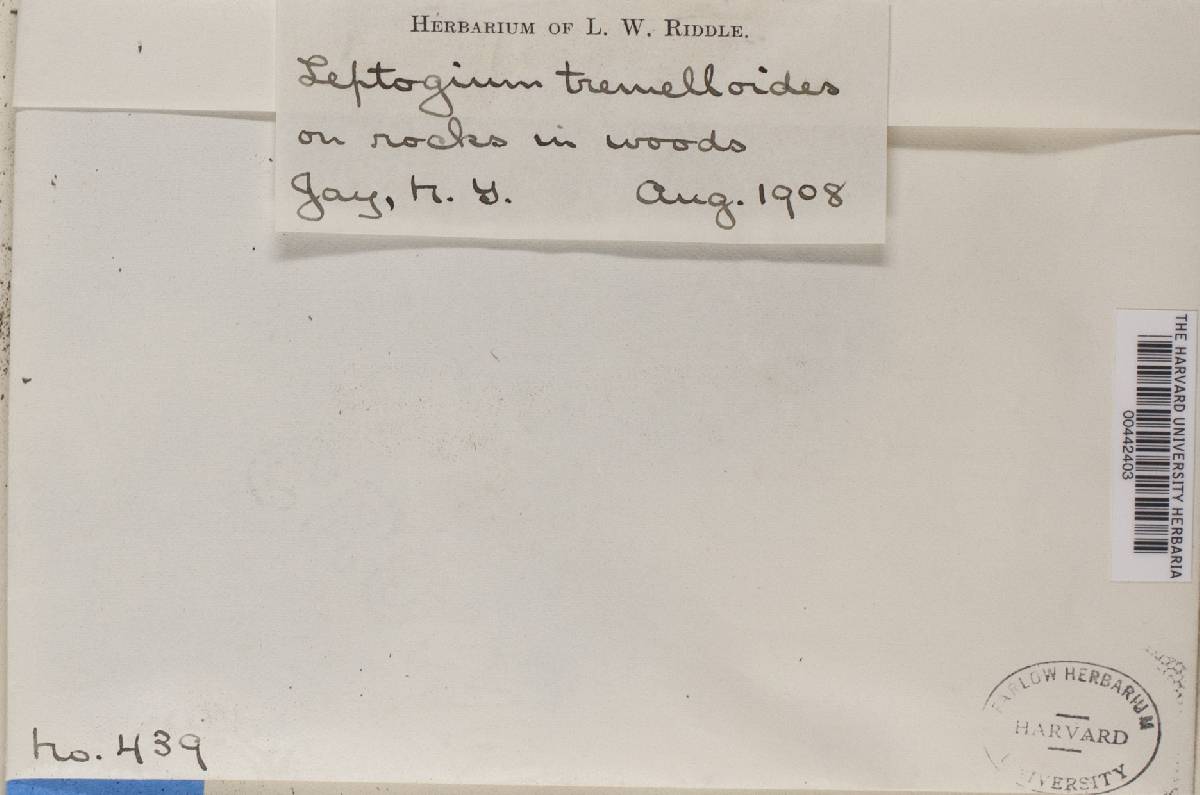 HERBARIUM OF L. W. RIDDLE.
Leptogium tremelloides
on rocks in woods
Jay, N. Y. Aug. 1908
THE HARVARD UNIVERSITY HERBARIA
00442403
No. 439
FARLOW HERBARIUM
HARVARD
UNIVERSITY